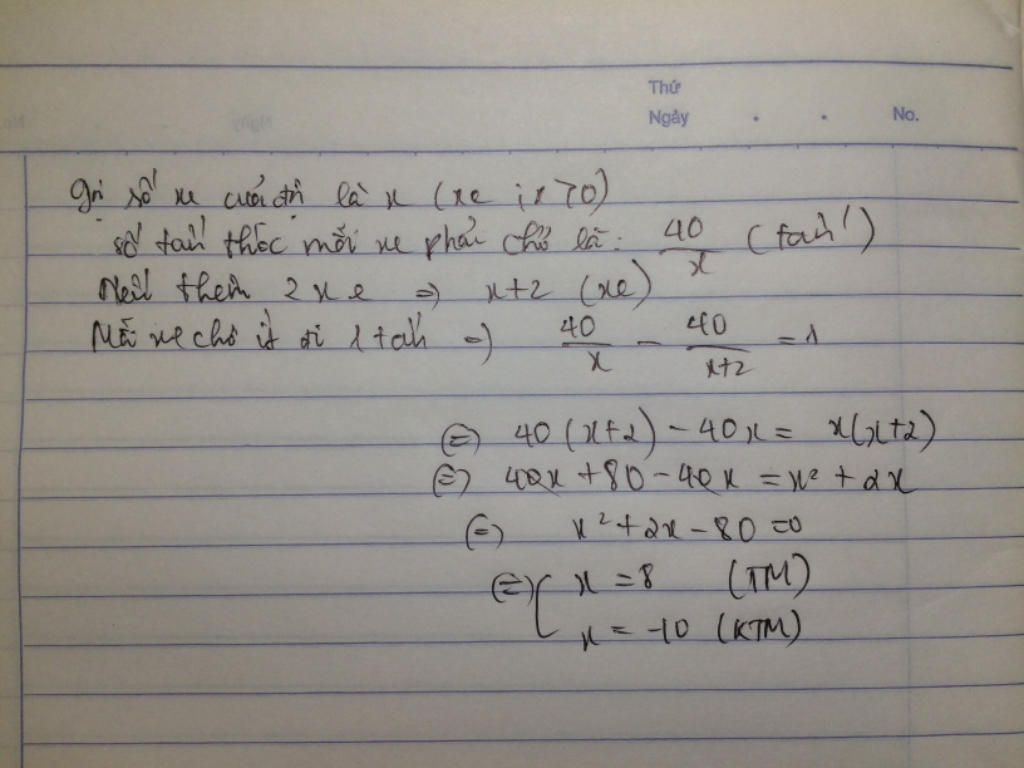 Thứ
Ngày . . No.
Gọi số xe là x (xe ; x > 0)
số tấn thóc mỗi xe phải chở là: 40/x (tấn)
Nếu thêm 2 xe => x+2 (xe)
Mỗi xe chở ít đi 1 tấn => 40/x - 40/(x+2) = 1
<=> 40(x+2) - 40x = x(x+2)
<=> 40x + 80 - 40x = x² + 2x
<=> x² + 2x - 80 = 0
<=> [ x = 8 (TM)
x = -10 (KTM)